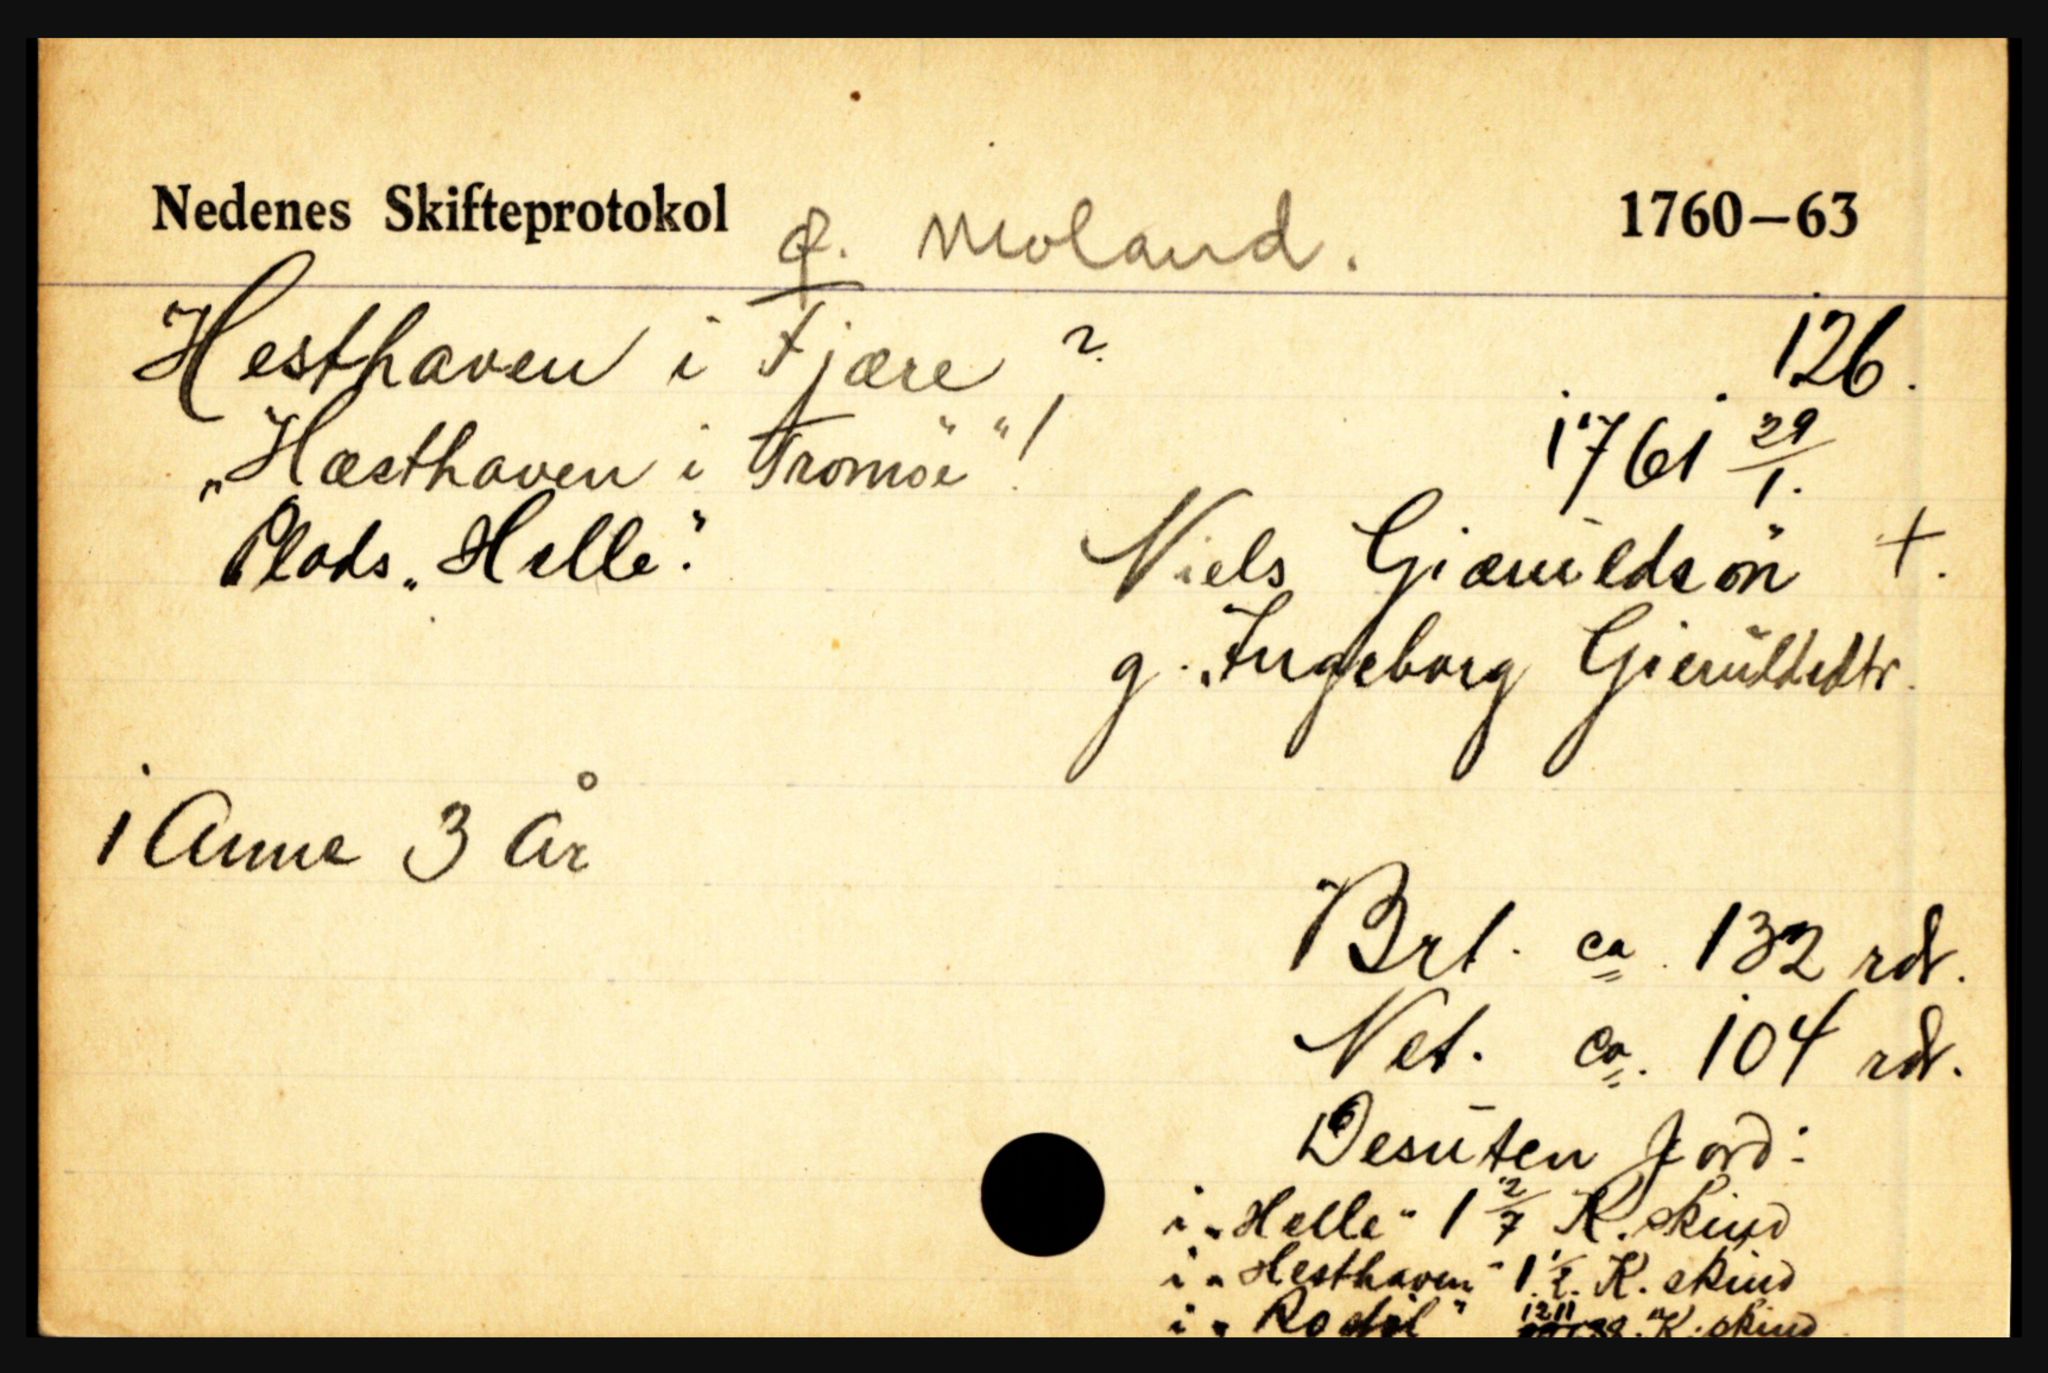 Nedenes Skifteprotokol Ø. Moland. 1760—63
Hesthaven i Fjære ? 126.
„Hæsthaven i Tromöe" "! 1761 29/1.
Plads „Helle". Niels Giæruldsön +.
g. Ingeborg Gieruldsdtr.
1 Anne 3 År
Brt. ca. 132 rdr.
Net. ca. 104 rdr.
Desuten Jord:
i „Helle" 1 2/7 K. skind
i „Hesthaven" 1 1/2 K. skind
i K. skind